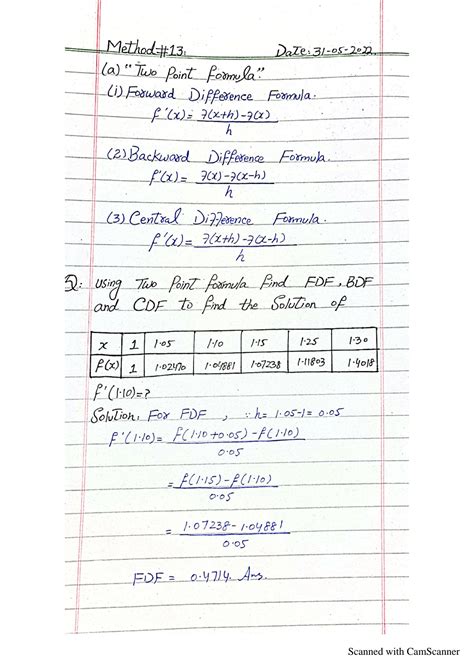 Method#13:
Date: 31-05-2022
(a) "Two Point formula"
(i) Forward Difference Formula.
f'(x) = f(x+h)-f(x)
h
(2) Backward Difference Formula.
f'(x) = f(x)-f(x-h)
h
(3) Central Difference Formula.
f'(x) = f(x+h)-f(x-h)
h
Q: using Two Point formula find FDF, BDF
and CDF to find the Solution of
x 1 1.05 1.10 1.15 1.25 1.30
f(x) 1 1.02470 1.04881 1.07238 1.11803 1.4018
f'(1.10)=?
Solution: For FDF , ∵ h = 1.05-1 = 0.05
f'(1.10) = f(1.10+0.05)-f(1.10)
0.05
= f(1.15)-f(1.10)
0.05
= 1.07238-1.04881
0.05
FDF = 0.4714. Ans.
Scanned with CamScanner